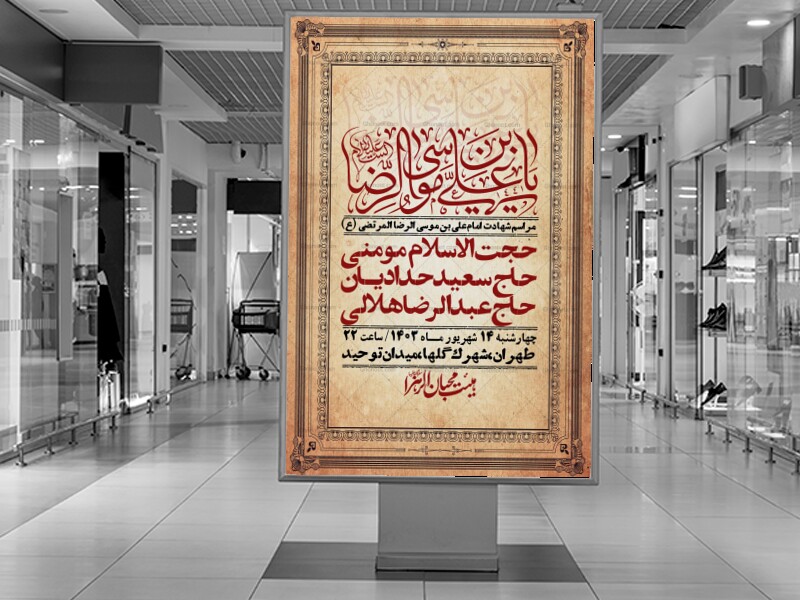 یا علی بن موسی الرضا
مراسم شهادت امام علی بن موسی الرضا المرتضی (ع)
حجت الاسلام مومنی
حاج سعید حدادیان
حاج عبدالرضا هلالی
چهارشنبه ۱۴ شهریور مــاه ۱۴۰۳ / ساعت ۲۲
طهران، شهرك گلها، میدان توحید
هیئت محبان الزهرا